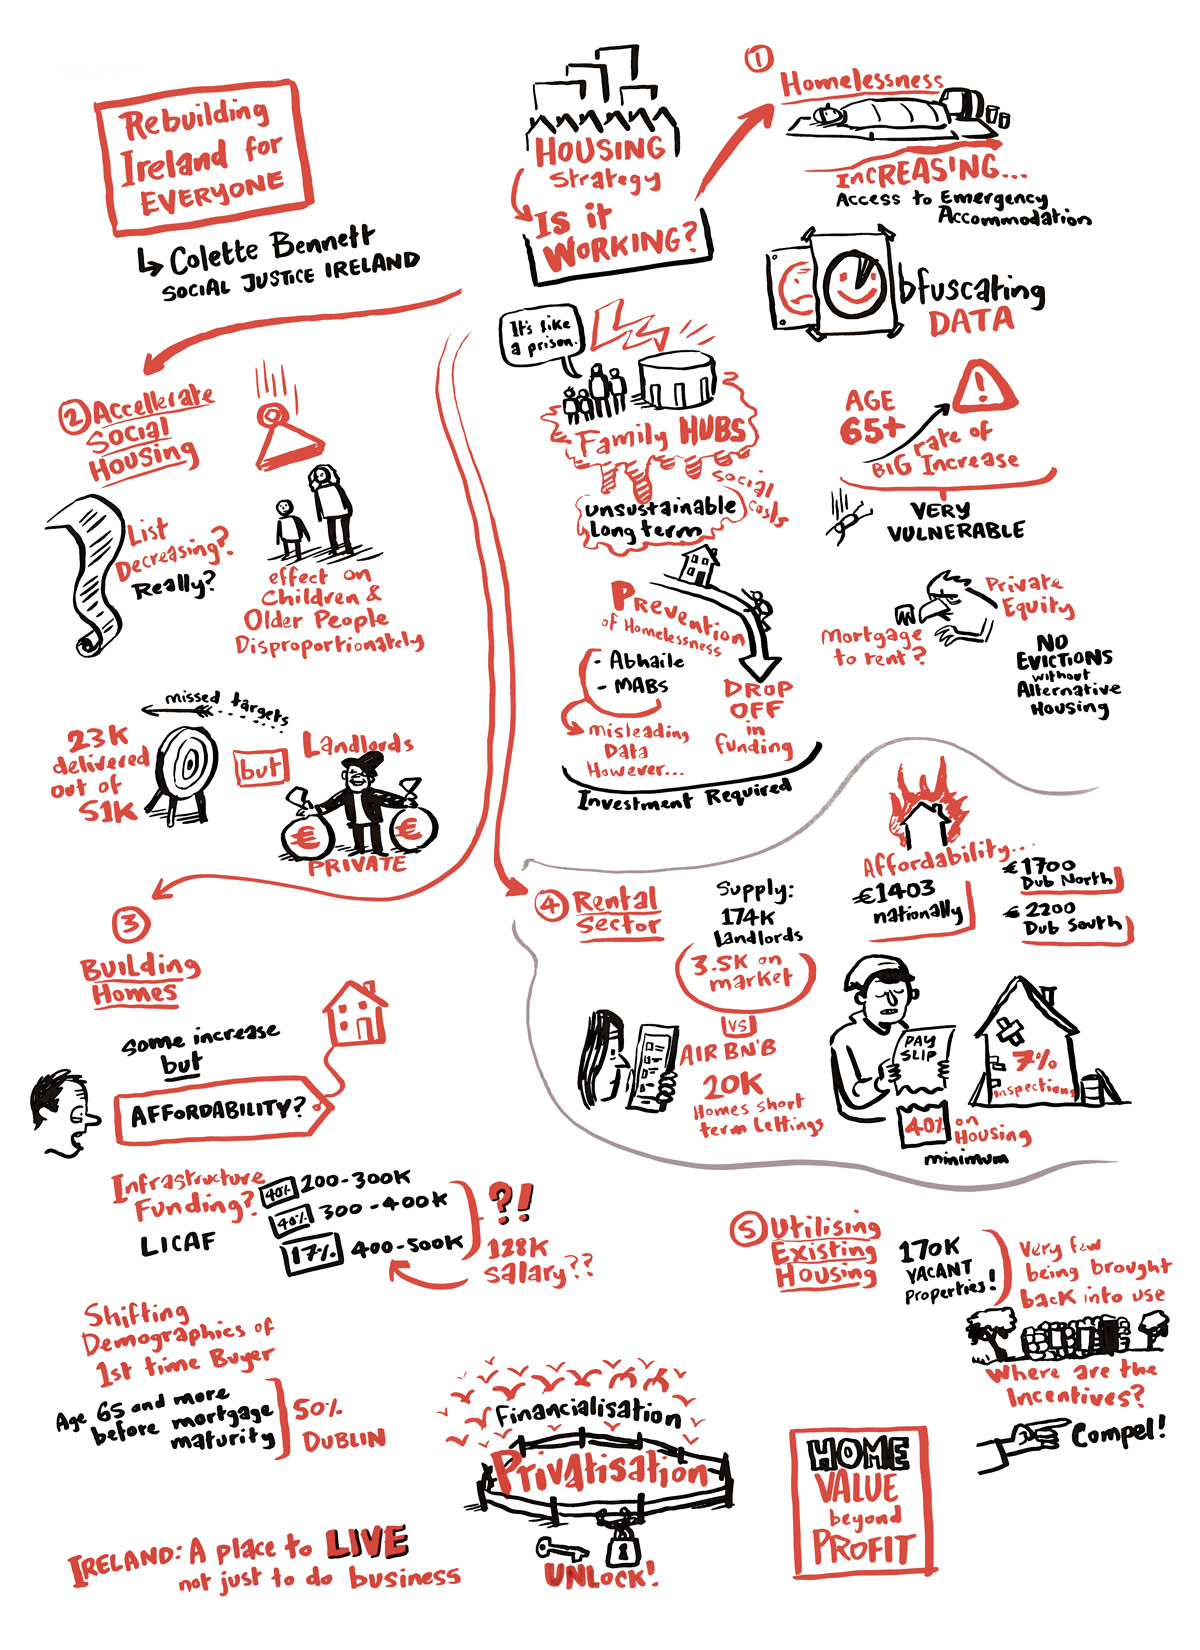 Rebuilding
Ireland for
EVERYONE
Colette Bennett
SOCIAL JUSTICE IRELAND
HOUSING
Strategy
Is it
WORKING?
1
Homelessness
INCREASING...
Access to Emergency
Accommodation
Obfuscating
DATA
It's like
a prison.
Family HUBS
Social
Costs
Unsustainable
Long term
AGE
65+
rate of
BIG Increase
VERY
VULNERABLE
Prevention
of Homelessness
- Abhaile
- MABS
misleading
Data
However...
DROP
OFF
in
funding
Investment Required
Mortgage
to rent?
Private
Equity
NO
EVICTIONS
without
Alternative
Housing
2 Accellerate
Social
Housing
List
Decreasing?
Really?
effect on
Children &
Older People
Disproportionately
missed targets
23K
delivered
out of
51K
but
Landlords
€ €
PRIVATE
3
Building
Homes
Some increase
but
AFFORDABILITY?
Infrastructure
Funding?
LICAF
40% 200-300K
40% 300-400K
17% 400-500K
?!
128K
Salary??
Shifting
Demographics of
1st time Buyer
Age 65 and more
before mortgage
maturity
50%
DUBLIN
4 Rental
Sector
Supply:
174K
Landlords
3.5K on
market
VS
AIR BNB
20K
Homes short
term Lettings
Affordability...
€1403
nationally
€1700
Dub North
€2200
Dub South
PAY
SLIP
40% on
Housing
minimum
7%
inspections
5 Utilising
Existing
Housing
170K
VACANT
Properties!
Very few
being brought
back into use
Where are the
Incentives?
Compel!
Financialisation
Privatisation
UNLOCK!
HOME
VALUE
beyond
PROFIT
IRELAND: A place to LIVE
not just to do business